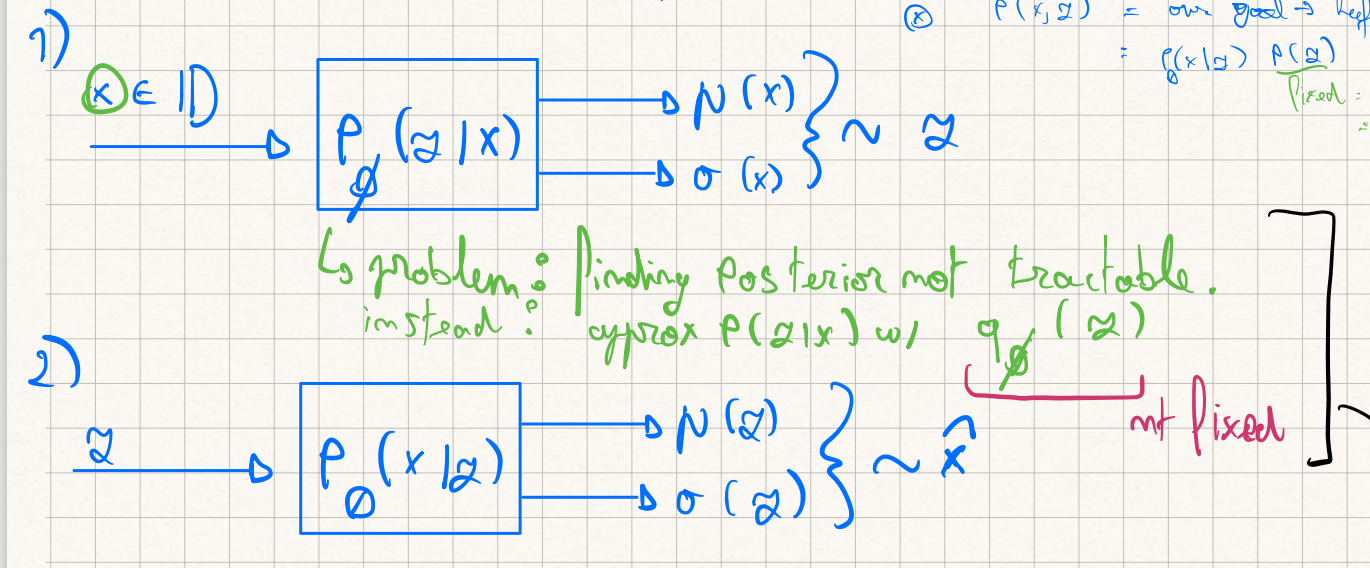 p(x,z) = our goal →
1)
= pθ(x|z) p(z)
fixed =
x ∈ ID
pϕ(z|x)
μ(x)
σ(x)
~ z
↳ problem: finding posterior not tractable.
instead: approx p(z|x) w/ qϕ(z)
not fixed
2)
z
pθ(x|z)
μ(z)
σ(z)
~ x̂